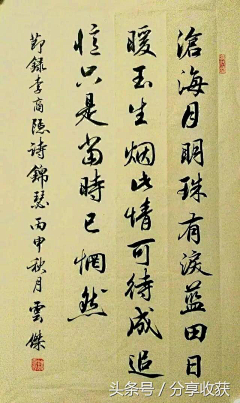 滄海月明珠有淚藍田日
暖玉生烟此情可待成追
憶只是當時已惘然
節錄李商隱詩錦瑟丙申秋月雲傑
头条号 / 分享收获